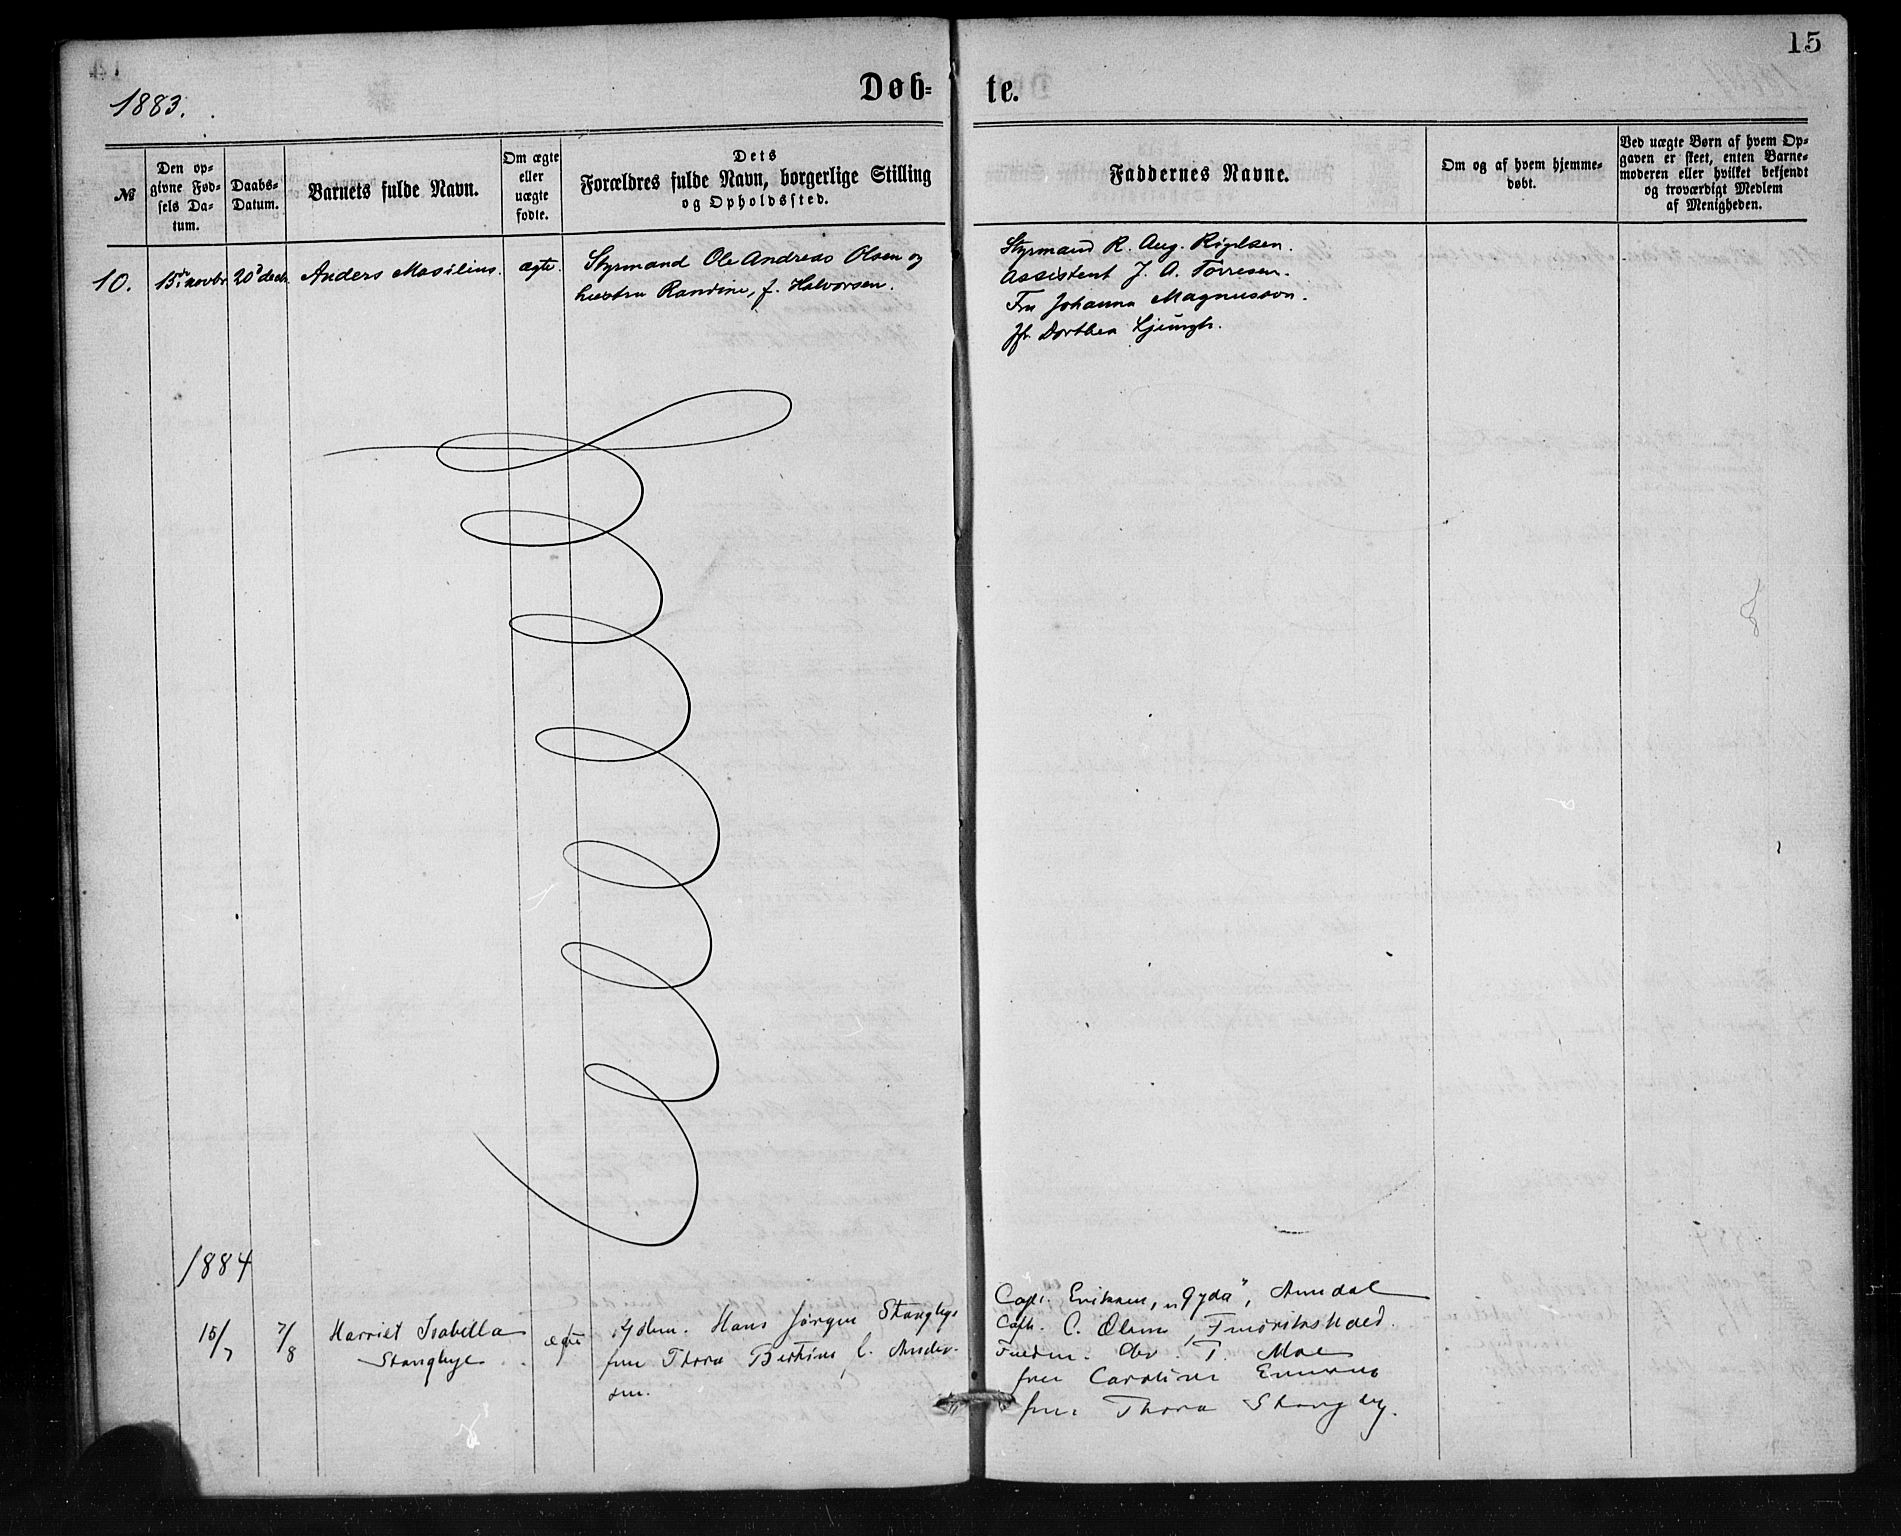 15
1883.
Døb-
te.
№
Den op-
givne Fød-
sels Da-
tum.
Daabs-
Datum.
Barnets fulde Navn.
Om ægte
eller
uægte
fødte.
Dets
Forældres fulde Navn, borgerlige Stilling
og Opholdssted.
Faddernes Navne.
Om og af hvem hjemme-
døbt.
Ved uægte Børn af hvem Op-
gaven er skeet, enten Barne-
moderen eller hvilket bekjendt
og troværdigt Medlem
af Menigheden.
10.
15de novbr
20de decbr.
Anders Masilius.
ægte.
Styrmand Ole Andreas Olsen og
hustru Randine, f. Halvorsen.
Styrmand R. Aug.
Assistent J. A. Torresen.
Fru Johanna Magnusson.
Jfr. Dorthea
1884
15/7
7/8
Harriet Isabella
Stangbye
ægte
Hans Jørgen Stangbye
fru Thora C. Ander-
sen.
Capt. Eriksen, "Gyda", Arendal
Capt. C. Olsen, Fredrikshald.
T. Moe
fru Caroline
fru Thora Stangby.